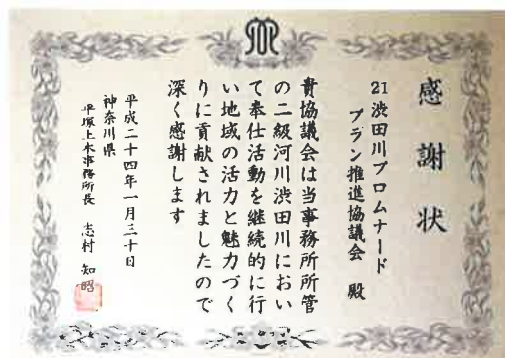 感謝状
21渋田川プロムナード
プラン推進協議会 殿
貴協議会は当事務所所管
の二級河川渋田川におい
て奉仕活動を継続的に行
い地域の活力と魅力づく
りに貢献されましたので
深く感謝します
平成二十四年一月三十日
神奈川県
平塚土木事務所長 志村 知昭